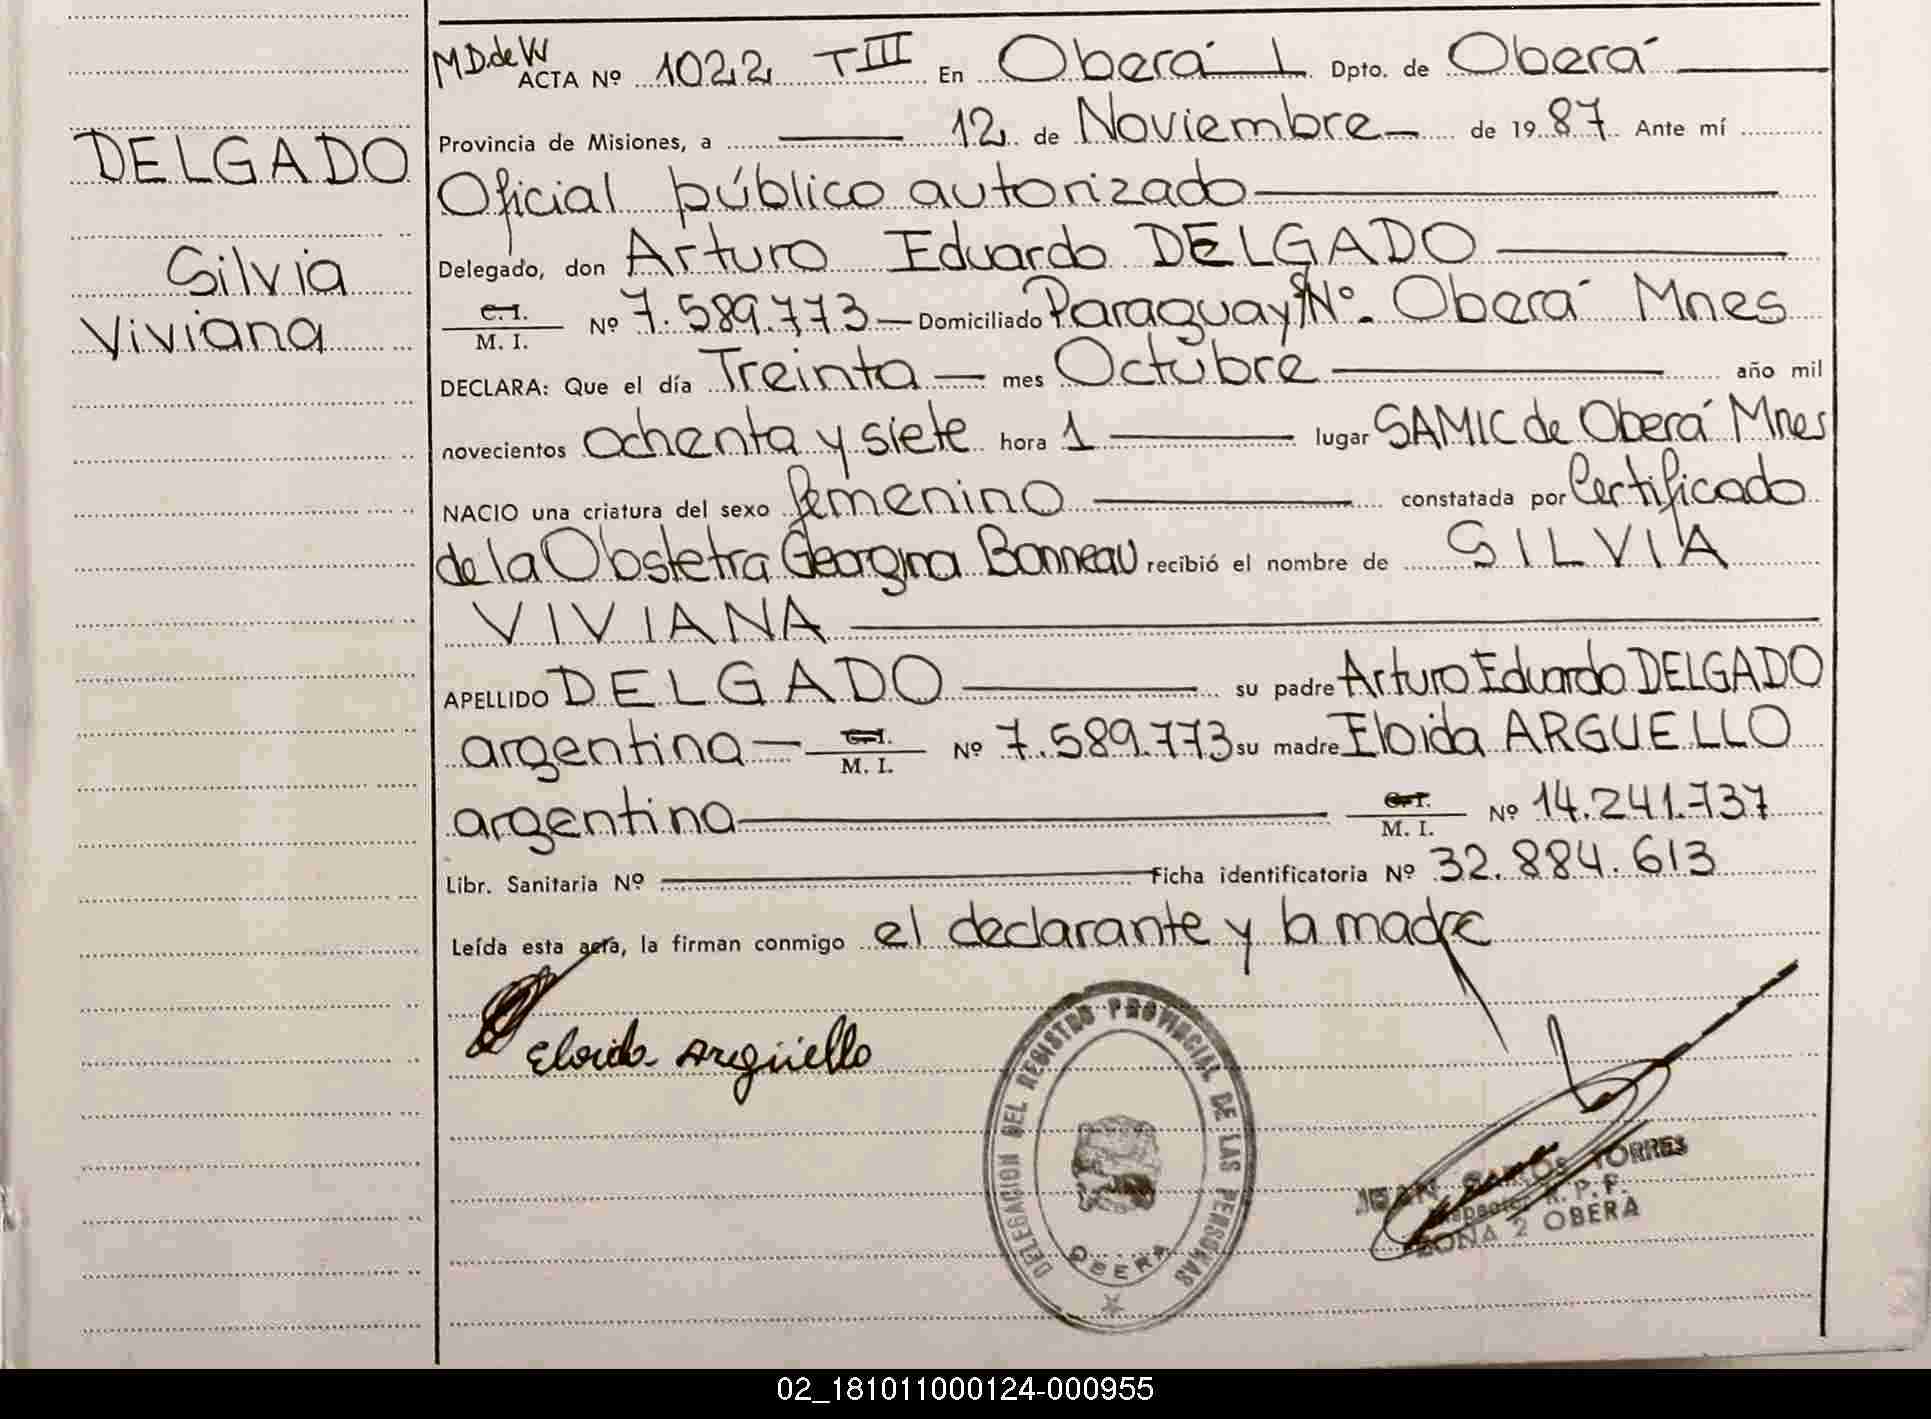 DELGADO
Silvia
Viviana
M.D.deW
ACTA Nº 1022 TIII En Oberá 1 Dpto. de Oberá
Provincia de Misiones, a 12 de Noviembre de 1987 Ante mí
Oficial público autorizado
Delegado, don Arturo Eduardo DELGADO
C.I.
M. I. Nº 7.589.773 Domiciliado Paraguay S/Nº Oberá Mnes
DECLARA: Que el día Treinta mes Octubre año mil
novecientos ochenta y siete hora 1 lugar SAMIC de Oberá Mnes
NACIO una criatura del sexo femenino constatada por Certificado
de la Obstetra Georgina Bonneau recibió el nombre de SILVIA
VIVIANA
APELLIDO DELGADO su padre Arturo Eduardo DELGADO
argentina C.I. M. I. Nº 7.589.773 su madre Eloida ARGUELLO
argentina C.I. M. I. Nº 14.241.737
Libr. Sanitaria Nº Ficha identificatoria Nº 32.884.613
Leída esta acta, la firman conmigo el declarante y la madre
Eloida Argüello
DELEGACION DEL REGISTRO PROVINCIAL DE LAS PERSONAS
OBERA
JUAN CARLOS TORRES
Inspector R.P.P.
ZONA 2 OBERA
02_181011000124-000955